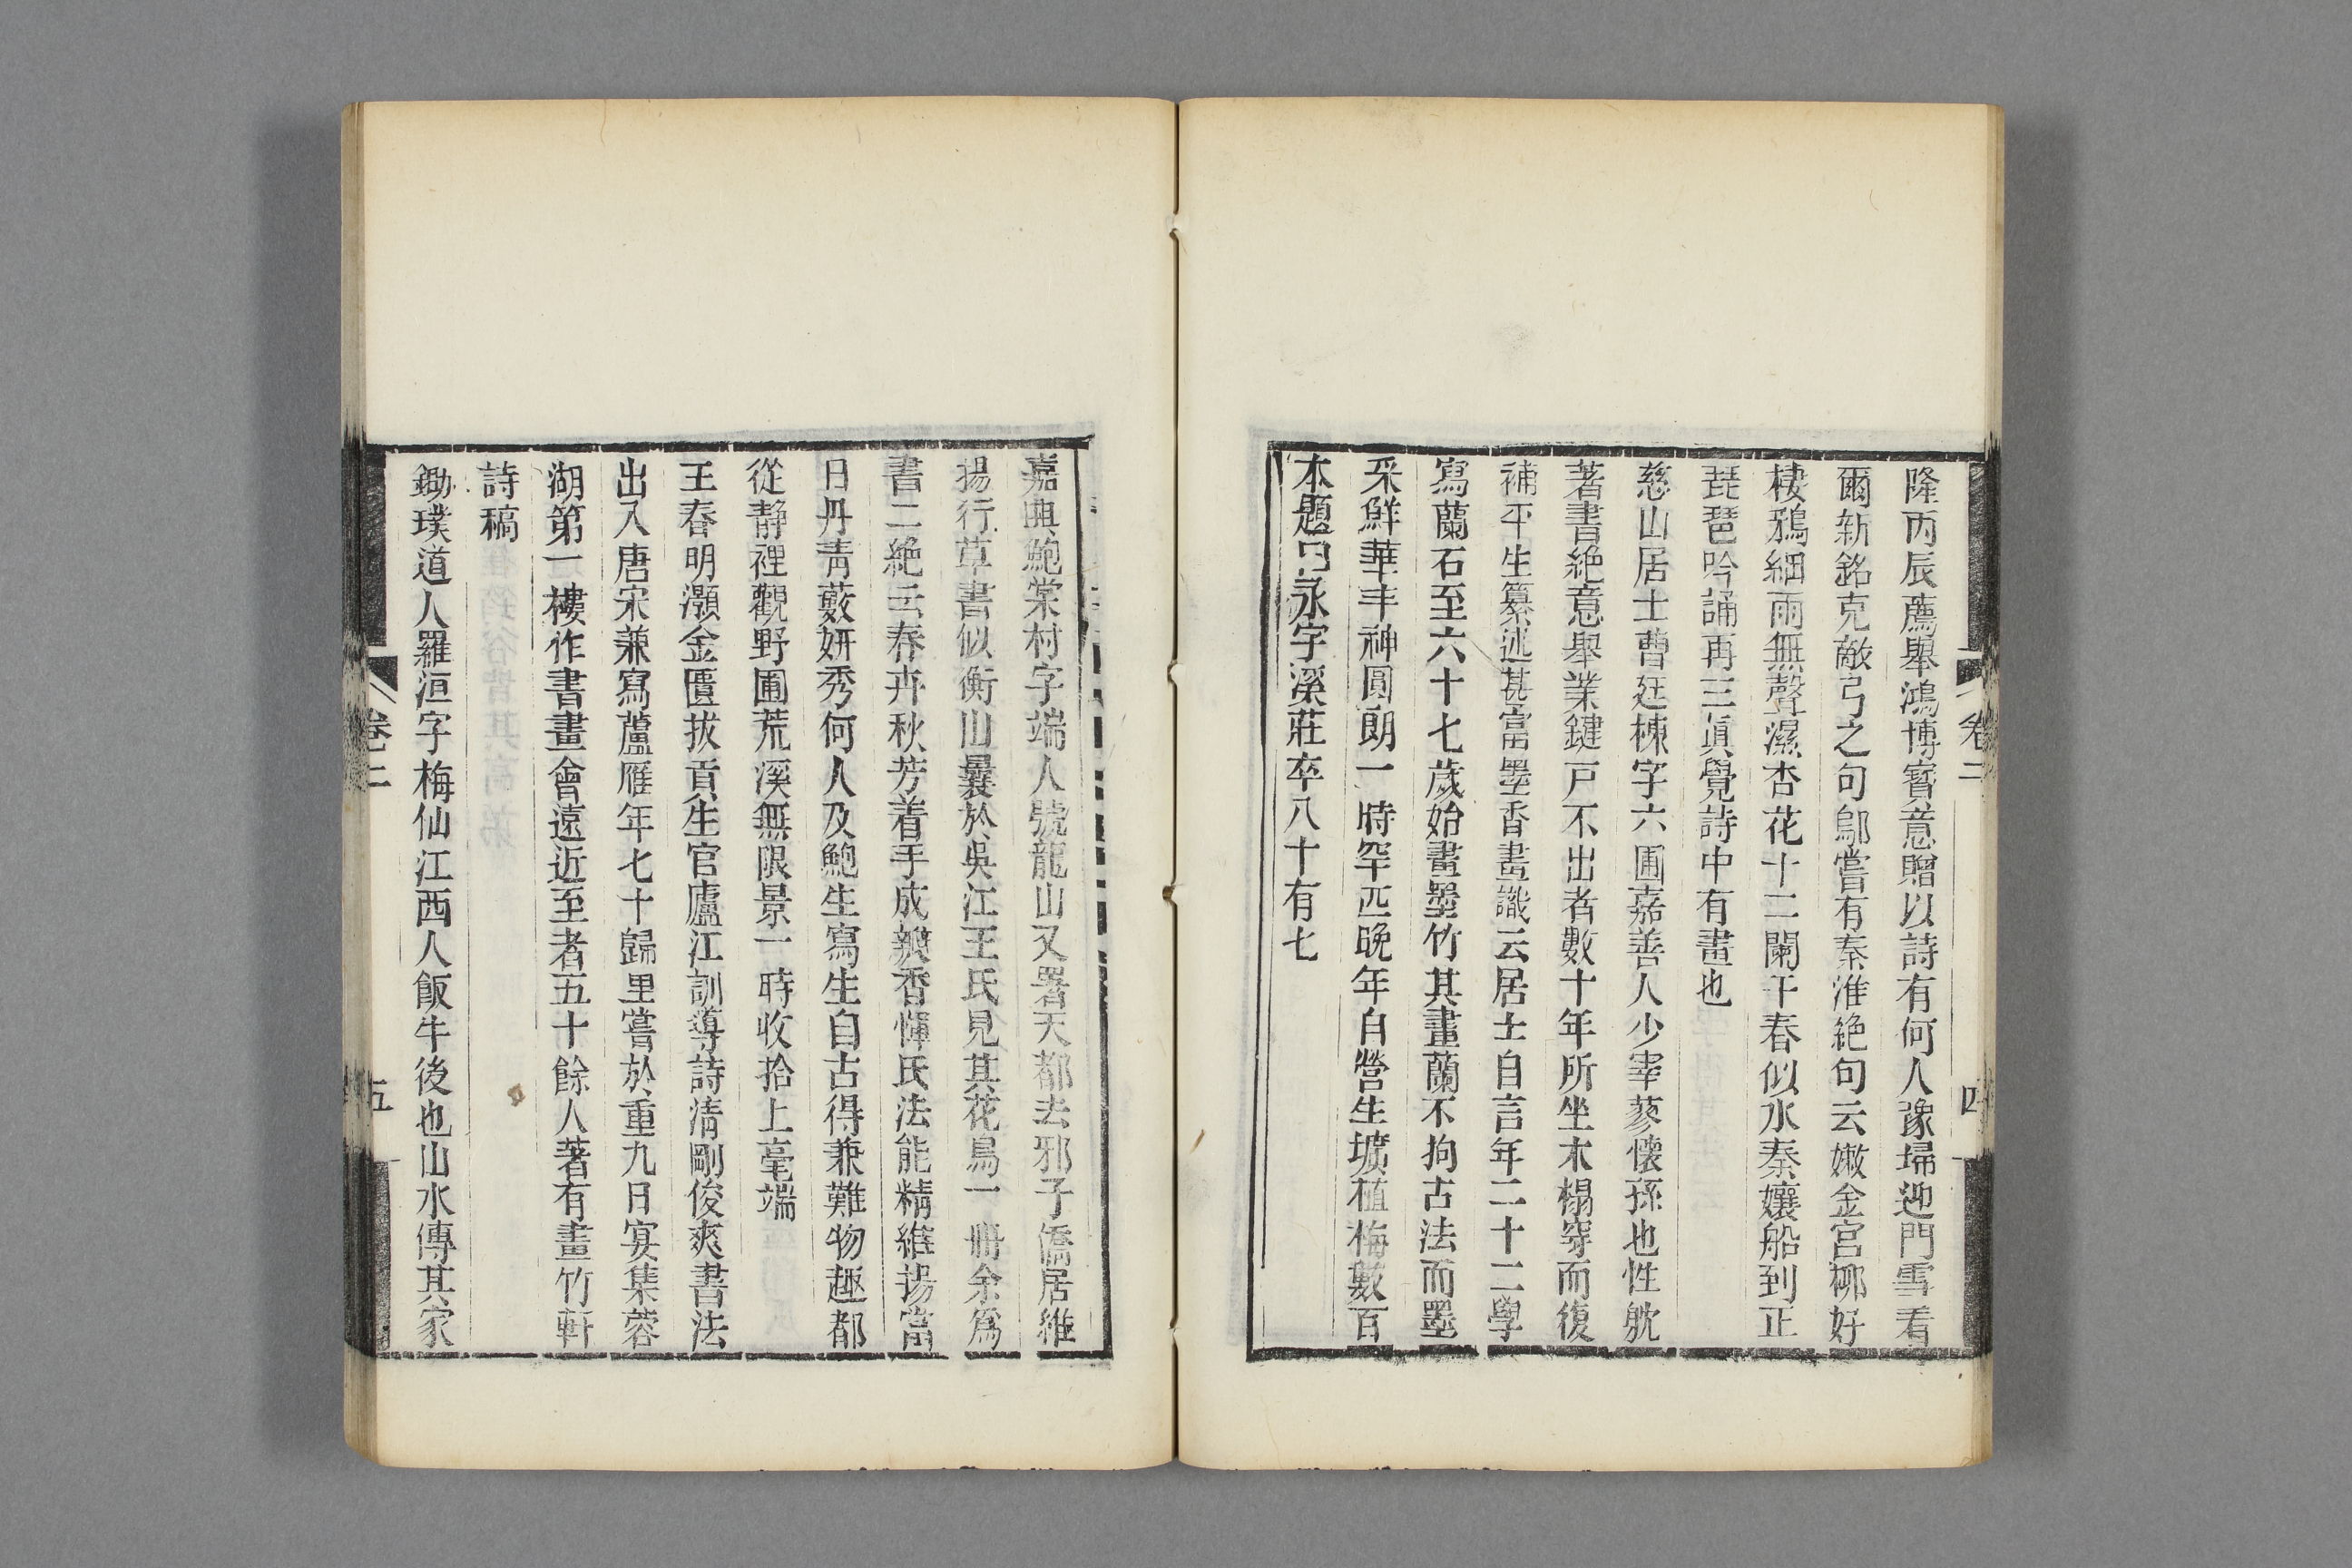 隆丙辰薦舉鴻博寳意贈以詩有何人豫埽迎門雪看
爾新銘克敵弓之句鄔嘗有秦淮絶句云嫩金宮桺好
棲鴉細雨無聲濕杏花十二闌干春似水秦孃船到正
琵琶吟誦再三眞覺詩中有畫也
慈山居士曹廷棟字六圃嘉善人少宰蓼懷孫也性躭
著書絶意舉業鍵戸不出者數十年所坐木榻穿而復
補平生纂述甚富墨香畫識云居士自言年二十二學
寫蘭石至六十七歲始畫墨竹其畫蘭不拘古法而墨
采鮮華丰神圓朗一時罕匹晚年自營生壙植梅數百
本題曰永宇溪莊卒八十有七
卷二
四
嘉興鮑棠村字端人號龍山又署天都去邪子僑居維
揚行草書似衡山曩於吳江王氏見其花鳥一册余爲
書二絶云春卉秋芳着手成瓣香惲氏法能精維揚當
日丹青藪妍秀何人及鮑生寫生自古得兼難物趣都
從静裡觀野圃荒溪無限景一時收拾上毫端
王春明灝金匱拔貢生官廬江訓導詩清剛俊爽書法
出入唐宋兼寫蘆雁年七十歸里嘗於重九日宴集蓉
湖第一樓作書畫會遠近至者五十餘人著有畫竹軒
詩稿
鋤璞道人羅洹字梅仙江西人飯牛後也山水傳其家
卷二
五